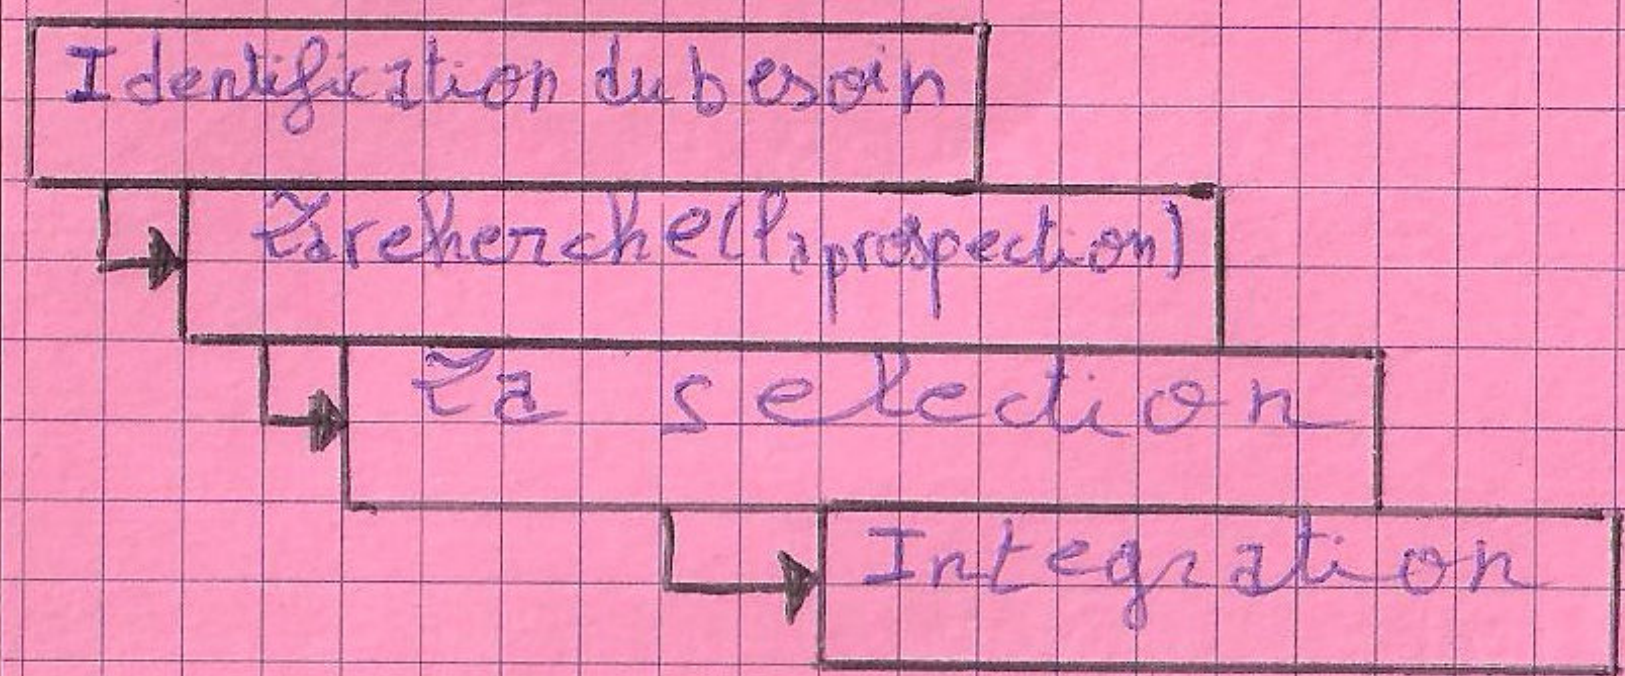 Identification du besoin
La recherche (la prospection)
La selection
Integration